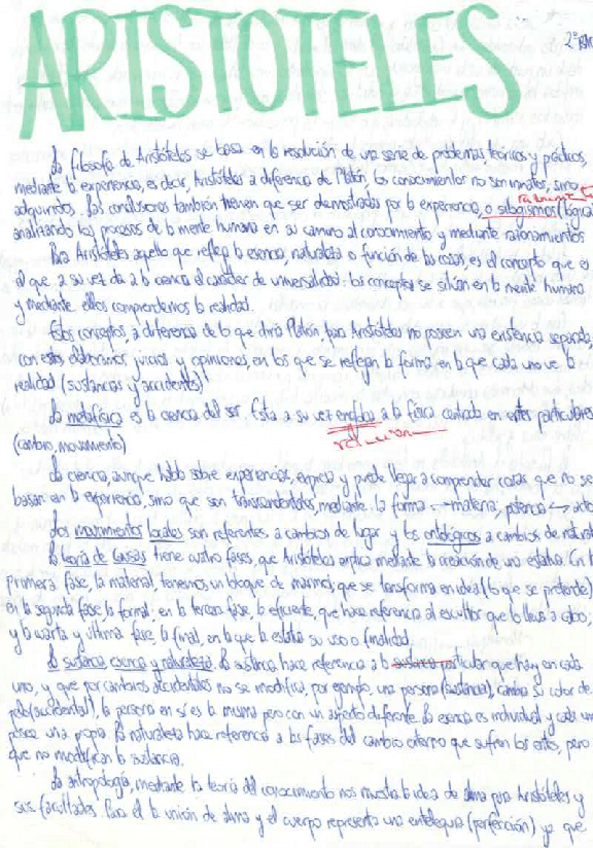 ARISTOTELES
2º BAC
La filosofía de Aristóteles se basa en la resolución de una serie de problemas teóricos y prácticos,
mediante la experiencia, es decir, Aristóteles a diferencia de Platón, los conocimientos no son innatos, sino
adquiridos. Las conclusiones también tienen que ser demostradas por la experiencia, o silogismos (lógica)
analizando los procesos de la mente humana en su camino al conocimiento y mediante razonamientos
Para Aristóteles aquello que refleja la esencia, naturaleza o función de las cosas, es el concepto que es
el que a su vez da a la ciencia el carácter de universalidad. los conceptos se sitúan en la mente humana
y mediante ellos comprendemos la realidad.
Estos conceptos, a diferencia de lo que diría Platón, para Aristóteles no poseen una existencia separada,
con estos elaboramos juicios y opiniones, en los que se reflejan la forma en la que cada uno ve la
realidad (sustancias y accidentes)
La metafísica es la ciencia del ser. Esta a su vez a la física centrada en entes particulares
relación
(cambio, movimiento)
La ciencia, aunque habla sobre experiencias, expresa y puede llegar a comprender cosas que no se
basan en la experiencia, sino que son transcendentales, mediante: la forma → materia; potencia ↔ acto
Los movimientos locales son referentes a cambios de lugar y los ontológicos a cambios de natural
La teoría de causas tiene cuatro fases, que Aristóteles explica mediante la creación de una estatua. En la
primera fase, la material, tenemos un bloque de marmol, que se transforma en idea (lo que se pretende)
en la segunda fase, la formal; en la tercera fase la eficiente, que hace referencia al escultor que lo lleva a cabo;
y la cuarta y última fase la final, en la que la estatua su uso o finalidad.
La sustancia, esencia y naturaleza. La sustancia hace referencia a lo particular que hay en cada
uno, y que por cambios accidentales no se modifica, por ejemplo, una persona (sustancia), cambia su color de
pelo (accidental), la persona en sí es la misma pero con un aspecto diferente. La esencia es individual y cada uno
posee una propia. La naturaleza hace referencia a las fases del cambio externo que sufren los entes, pero
que no modifican la sustancia.
La antropología, mediante la teoría del conocimiento nos muestra la idea de alma para Aristóteles y
sus facultades. Para el la unión de alma y el cuerpo representa una entelequia (perfección) ya que